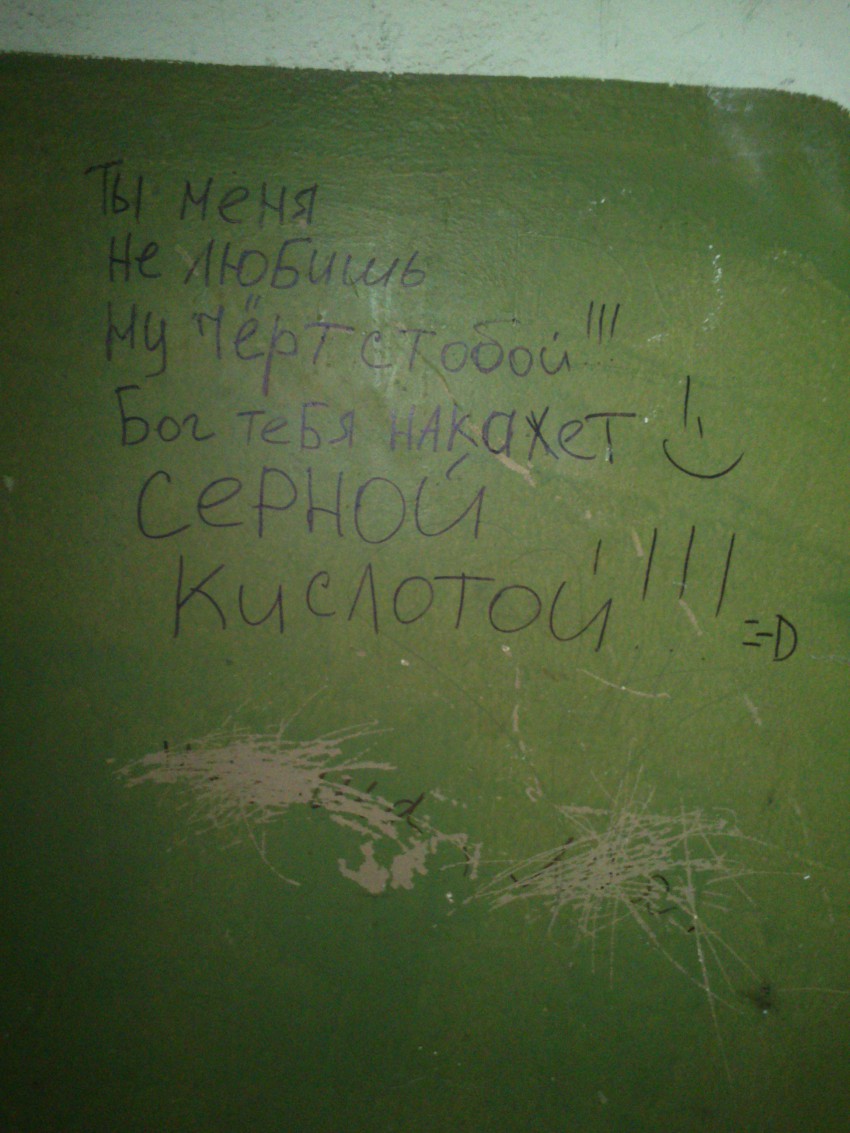 Ты меня
не любишь
ну чёрт с тобой!!!
Бог тебя накажет
серной
кислотой!!! =D